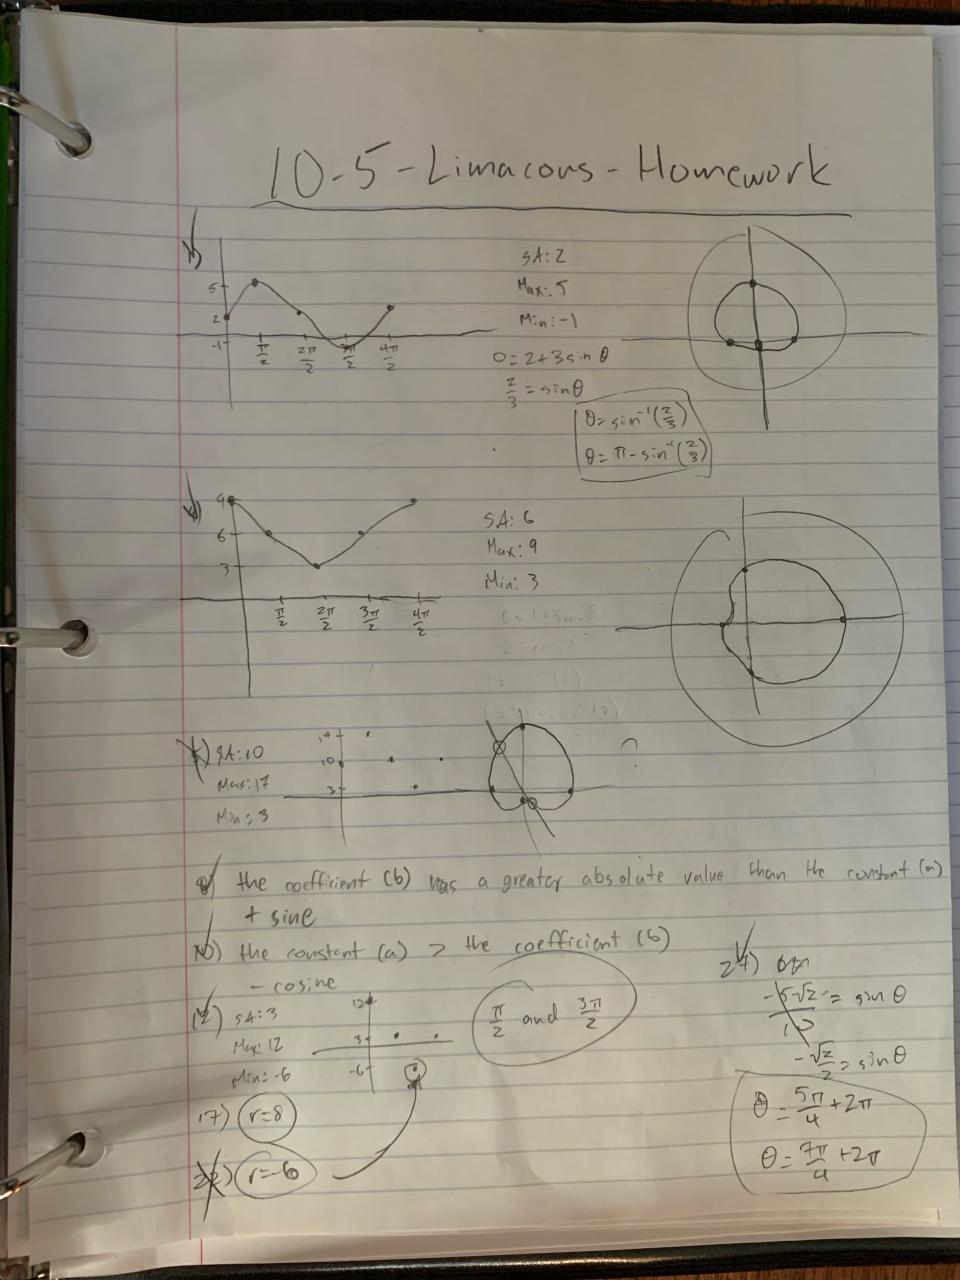 10-5-Limacons-Homework
5
2
-1
π/2 2π/2 3π/2 4π/2
SA: 2
Max: 5
Min: -1
0=2+3sin θ
2/3 = sinθ
θ= sin⁻¹(2/3)
θ= π-sin⁻¹(2/3)
9
6
3
π/2 2π/2 3π/2 4π/2
SA: 6
Max: 9
Min: 3
SA:10
Max: 17
Min: 3
17
10
3
?
8) the coefficient (b) has a greater absolute value than the constant (a)
+ sine
the constant (a) > the coefficient (b)
- cosine
12) SA: 3
Max: 12
Min: -6
12
3
-6
π/2 and 3π/2
17) r=8
r=-6
24)
-5√2 = sin θ
10
-√2/2 = sin θ
θ = 5π/4 +2π
θ = 7π/4 +2π